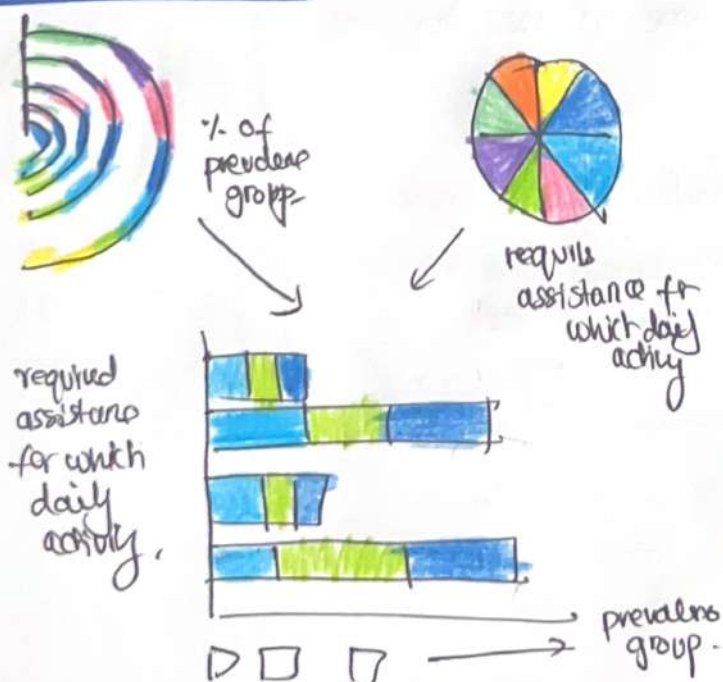 % of
prevdens
group-
require
assistance fr
which daily
activy
required
assistanc
for which
daily
activity.
prevalens
group.